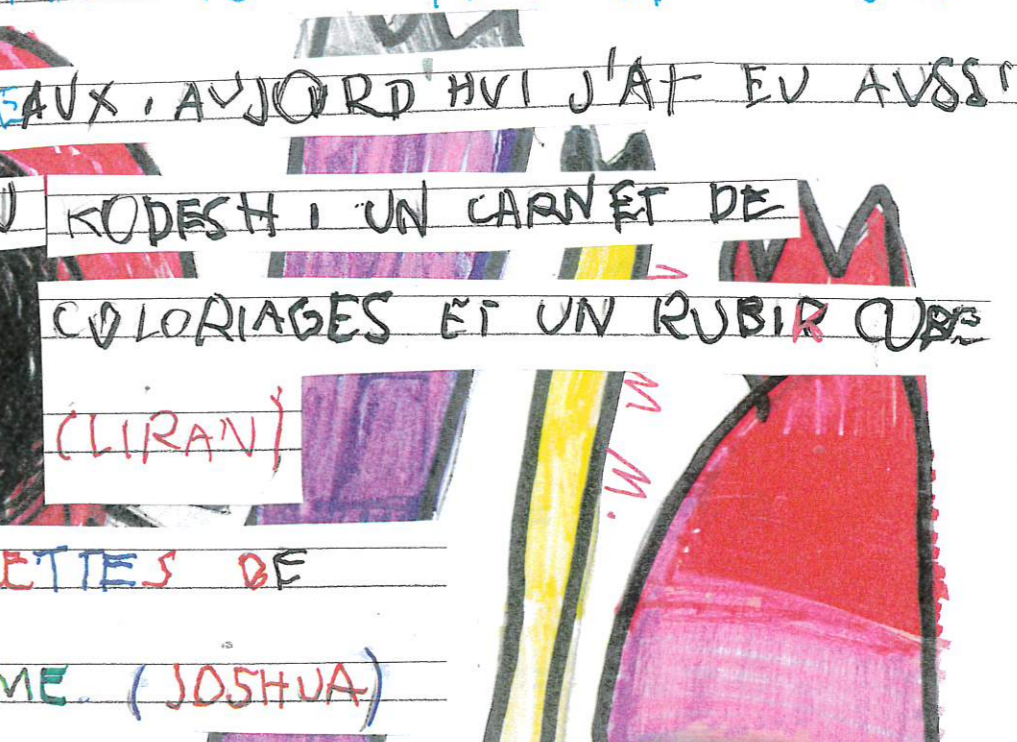 EAUX. AUJOURD'HUI J'AI EU AUSSI
U KODESH, UN CARNET DE
COLORIAGES ET UN RUBIR CUBE
(LIRAN)
ETTES DE
ME. (JOSHUA)